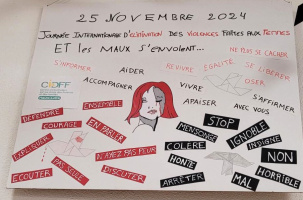 25 NOVEMBRE 2024
JOURNÉE INTERNATIONALE D'ÉLIMINATION DES VIOLENCES FAITES AUX FEMMES
ET les MAUX S'ENVOLENT...
NE PLUS SE CACHER
S'INFORMER
AIDER
REVIVRE
ÉGALITÉ
SE LIBÉRER
ACCOMPAGNER
VIVRE
OSER
CIDFF
APAISER
AVEC VOUS
S'AFFIRMER
DÉFENDRE
ENSEMBLE
COURAGE
EN PARLER
STOP
IGNOBLE
MENSONGE
INDIGNE
EXPLIQUER
PAS SEULE
N'AYEZ PAS PEUR
COLÈRE
NON
HONTE
HORRIBLE
ÉCOUTER
DISCUTER
ARRÊTER
MAL